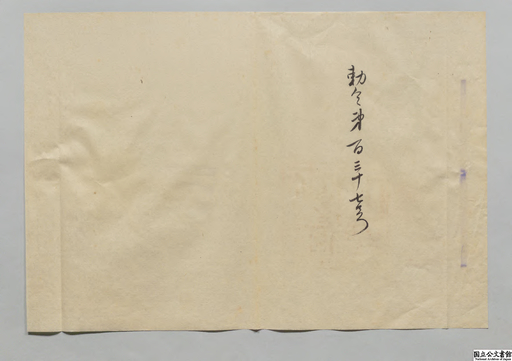 勅令第百三十七号
国立公文書館
National Archives of Japan